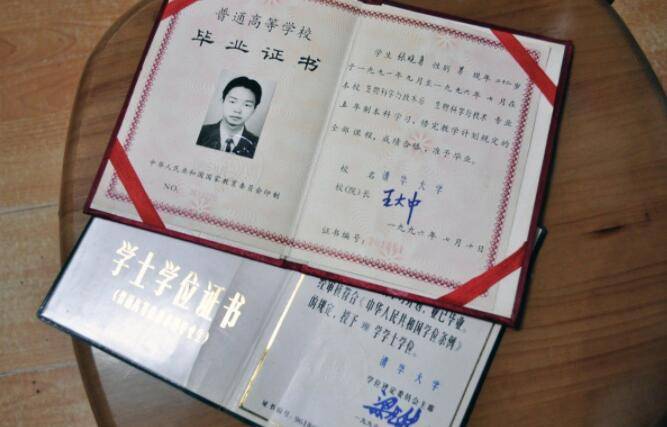 普通高等学校
毕业证书
中华人民共和国国家教育委员会印制
NO.
学生 张晓勇 性别 男 现年 岁
于一九九一年九月至一九九六年七月在
本校 生物科学与技术系 生物科学与技术 专业
五年制本科学习,修完教学计划规定的
全部课程,成绩合格,准予毕业。
校名 清华大学
校(院)长 王大中
证书编号:
一九九六年七月十日
学士学位证书
业已毕业,
经审核符合《中华人民共和国学位条例》
的规定,授予 理 学学士学位。
清华大学
学位评定委员会主席
证书编号:
一九九